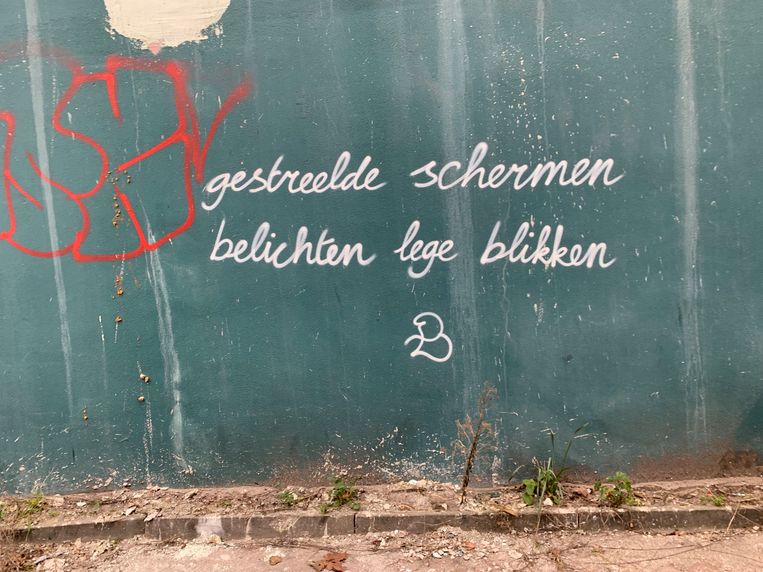 gestreelde schermen
belichten lege blikken